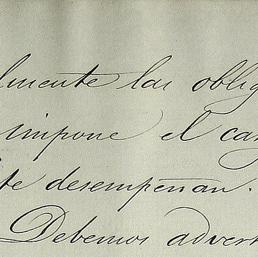 lmente las oblig
impone el ca
te desempeñan.
Debemos advert